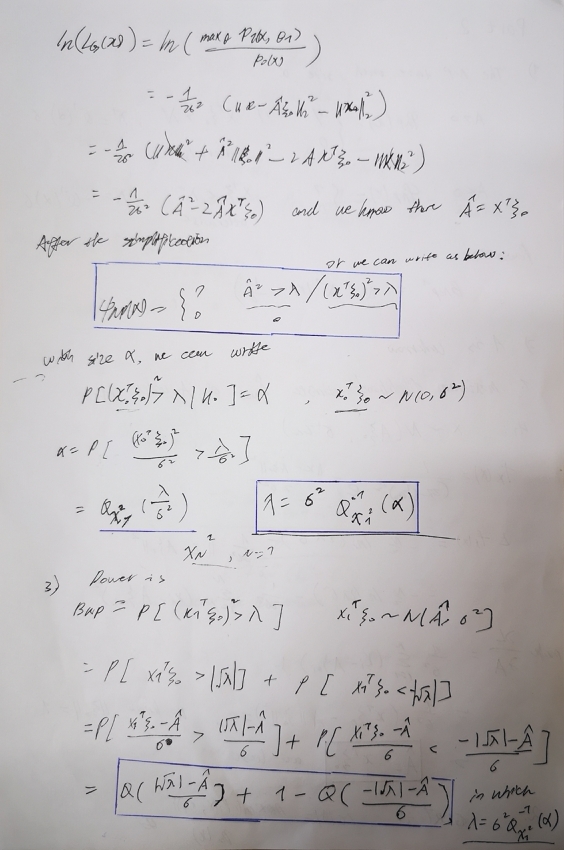 ln(L_G(x)) = ln( max_θ P_1(x, θ_1) / P_0(x) )
= -1/2σ² (||x - Âξ_0||_2² - ||x||_2²)
= -1/2σ² (||x||_2² + Â²||ξ_0||² - 2Âx^Tξ_0 - ||x||_2²)
= -1/2σ² (Â² - 2Âx^Tξ_0) and we know that Â = x^Tξ_0
After the simplification
or we can write as below:
φ_NP(x) = { 1 Â² > λ / (x^Tξ_0)² > λ
0 0
with size α, we can write
P[(x_0^Tξ_0)² > λ | H_0] = α , x_0^Tξ_0 ~ N(0, σ²)
α = P[ (x_0^Tξ_0)²/σ² > λ/σ² ]
= Q_χ_1²(λ/σ²) λ = σ² Q^-1_χ_1²(α)
χ_N² , N=1
3) Power is
P[(x_1^Tξ_0)² > λ] x_1^Tξ_0 ~ N(Â, σ²]
= P[ x_1^Tξ_0 > |√λ|] + P[ x_1^Tξ_0 < -|√λ|]
= P[ (x_1^Tξ_0 - Â)/σ > (|√λ| - Â)/σ ] + P[ (x_1^Tξ_0 - Â)/σ < (-|√λ| - Â)/σ ]
= Q( (|√λ| - Â)/σ ) + 1 - Q( (-|√λ| - Â)/σ ) in which
λ = σ² Q^-1_χ_1²(α)